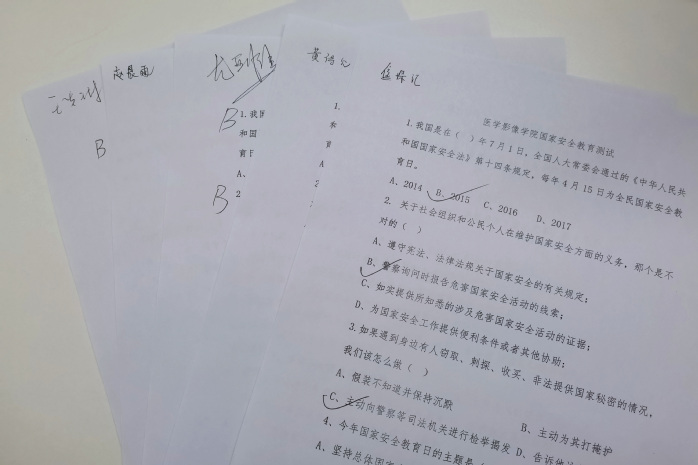 赵晨雨
B
B
1.我国
和国
育日
A、
B
2
黄诗
1.
和
育
A
2
医学影像学院国家安全教育测试
1.我国是在（ ）年7月1日，全国人大常委会通过的《中华人民共
和国国家安全法》第十四条规定，每年4月15日为全民国家安全教
育日。
A、2014 B、2015 C、2016 D、2017
2. 关于社会组织和公民个人在维护国家安全方面的义务，那个是不
对的（ ）
A、遵守宪法、法律法规关于国家安全的有关规定；
B、警察询问时报告危害国家安全活动的线索；
C、如实提供所知悉的涉及危害国家安全活动的证据；
D、为国家安全工作提供便利条件或者其他协助；
3.如果遇到身边有人窃取、刺探、收买、非法提供国家秘密的情况，
我们该怎么做（ ）
A、假装不知道并保持沉默
B、主动为其打掩护
C、主动向警察等司法机关进行检举揭发 D、告诉他
4、今年国家安全教育日的主题是
A、坚持总体国家